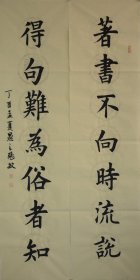 著書不向時流說
得句難為俗者知
丁酉孟夏